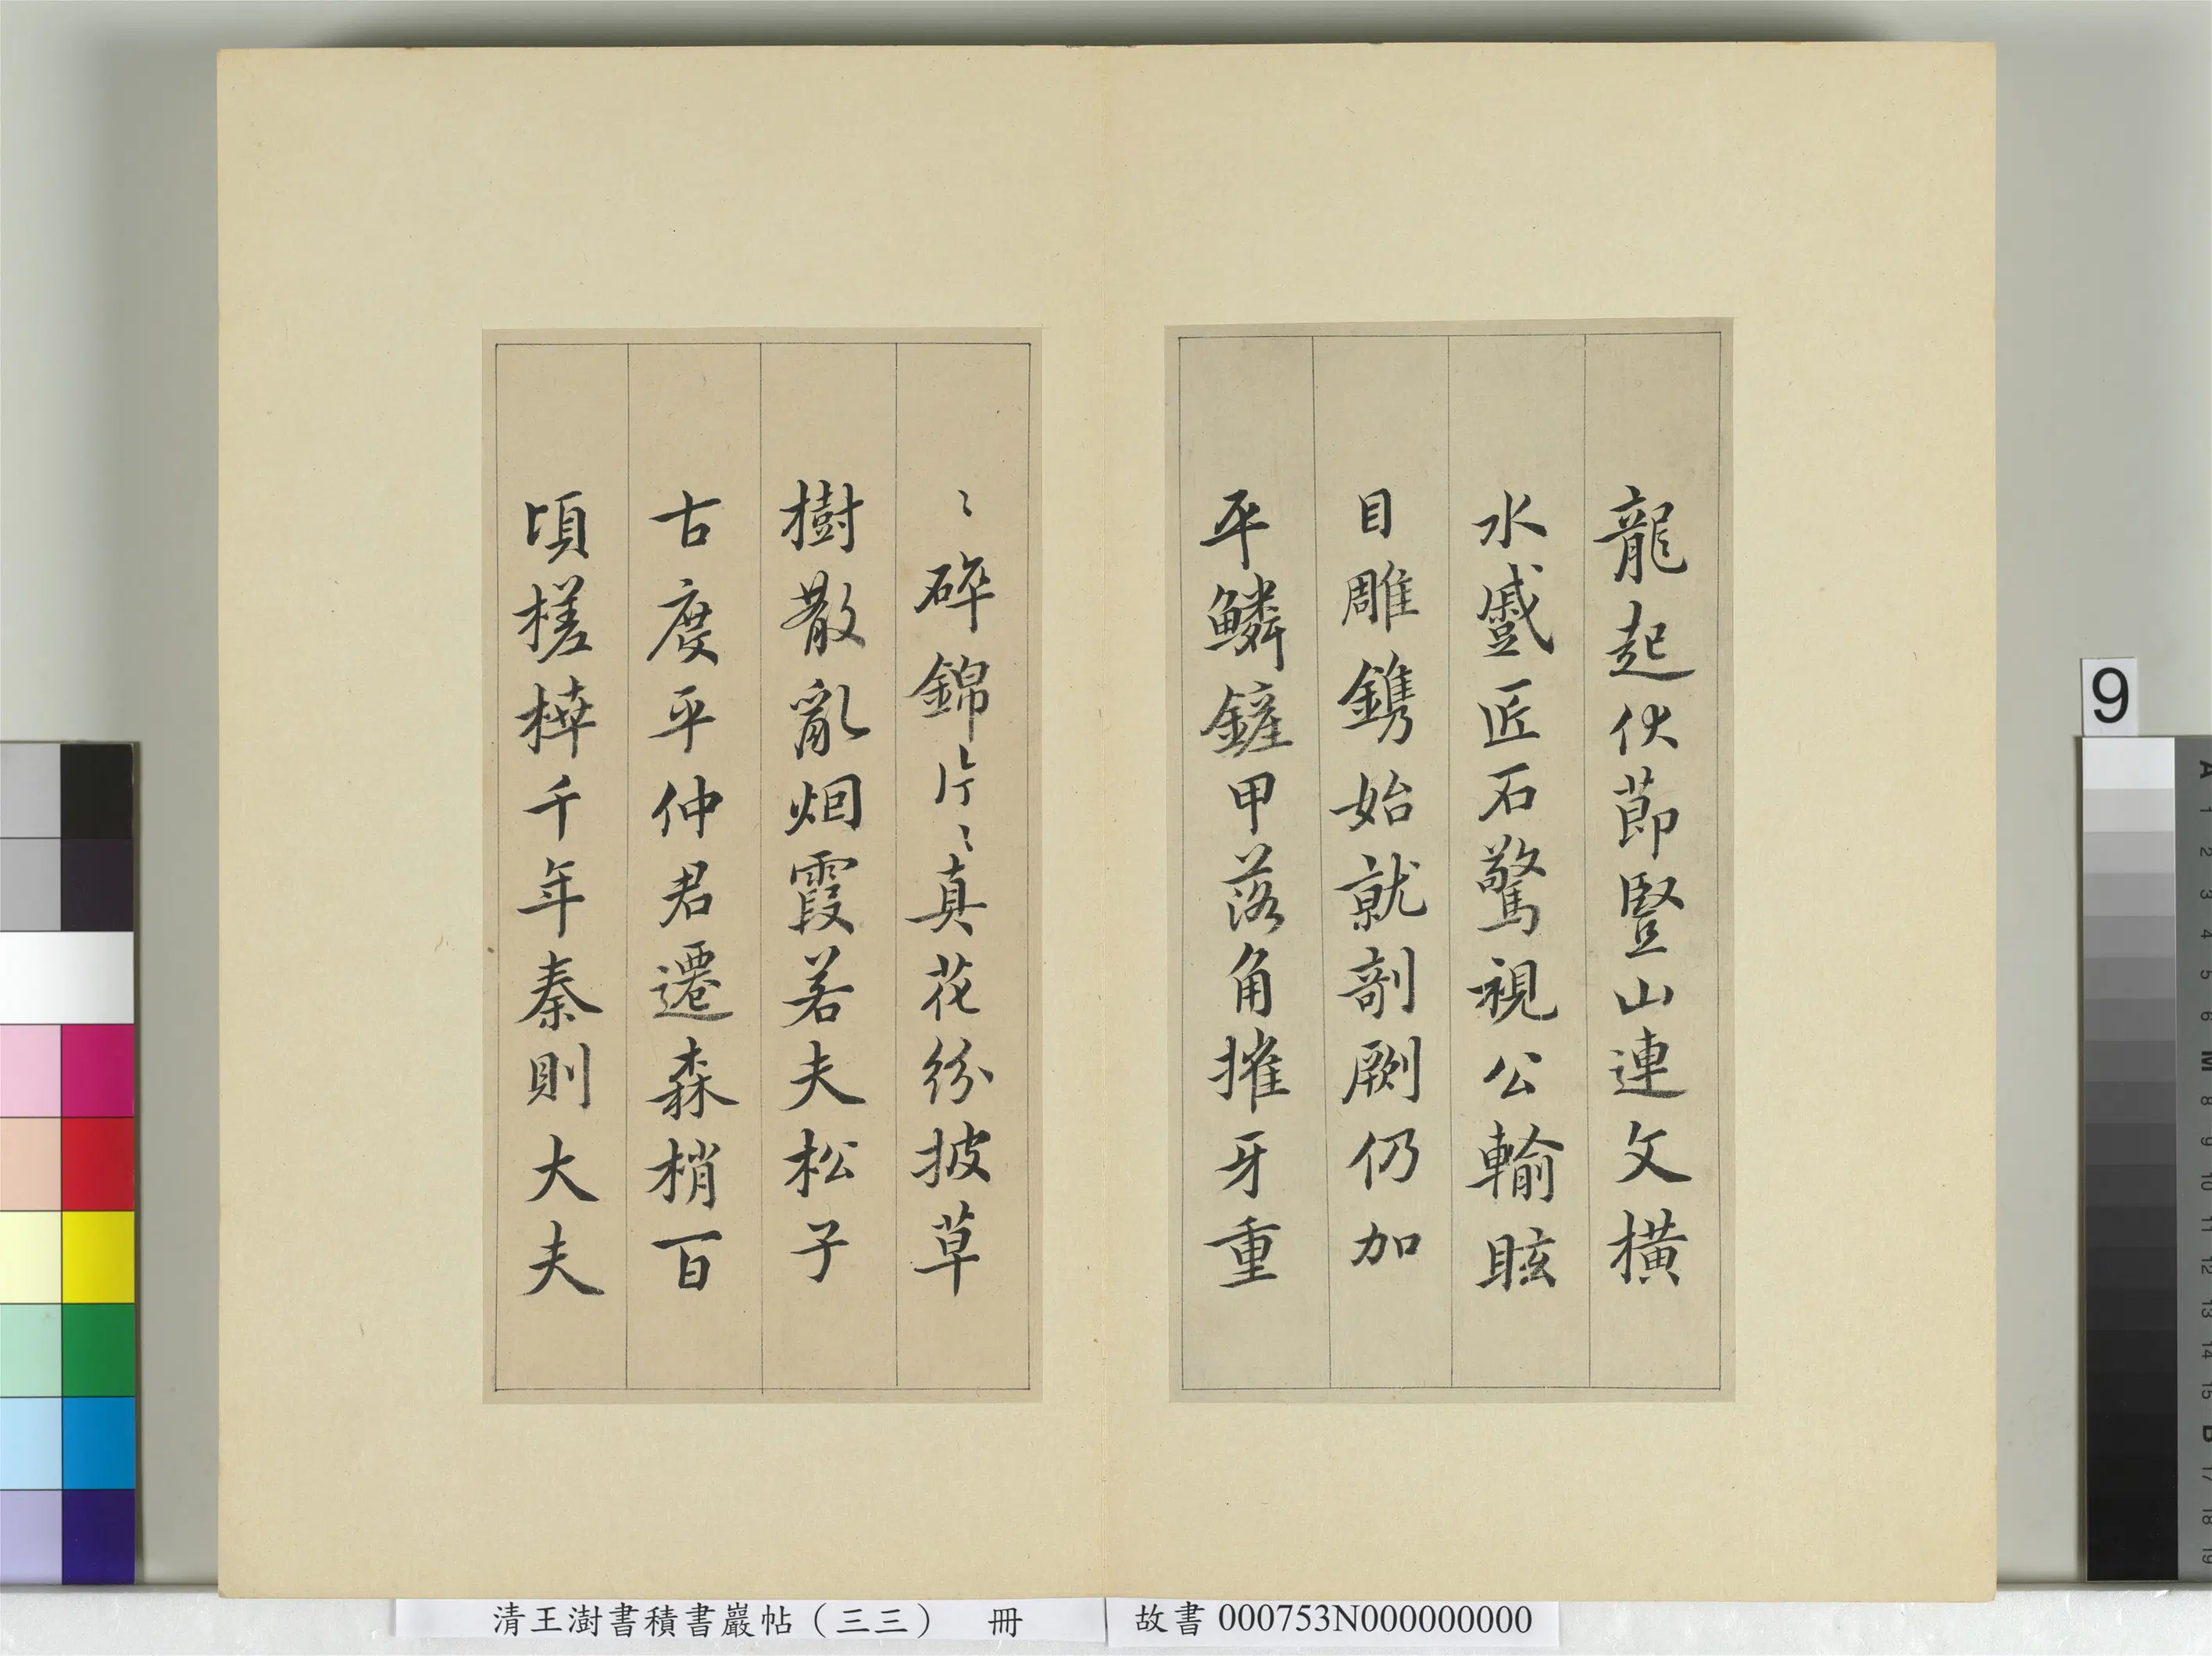 龍起伏節豎山連文橫
水蹙匠石驚視公輸眩
目雕鐫始就剞劂仍加
平鱗鏟甲落角摧牙重
〻碎錦片〻真花紛披草
樹散亂烟霞若夫松子
古度平仲君遷森梢百
頃槎枿千年秦則大夫
清王澍書積書巖帖（三三）　冊
故書 000753N000000000
9